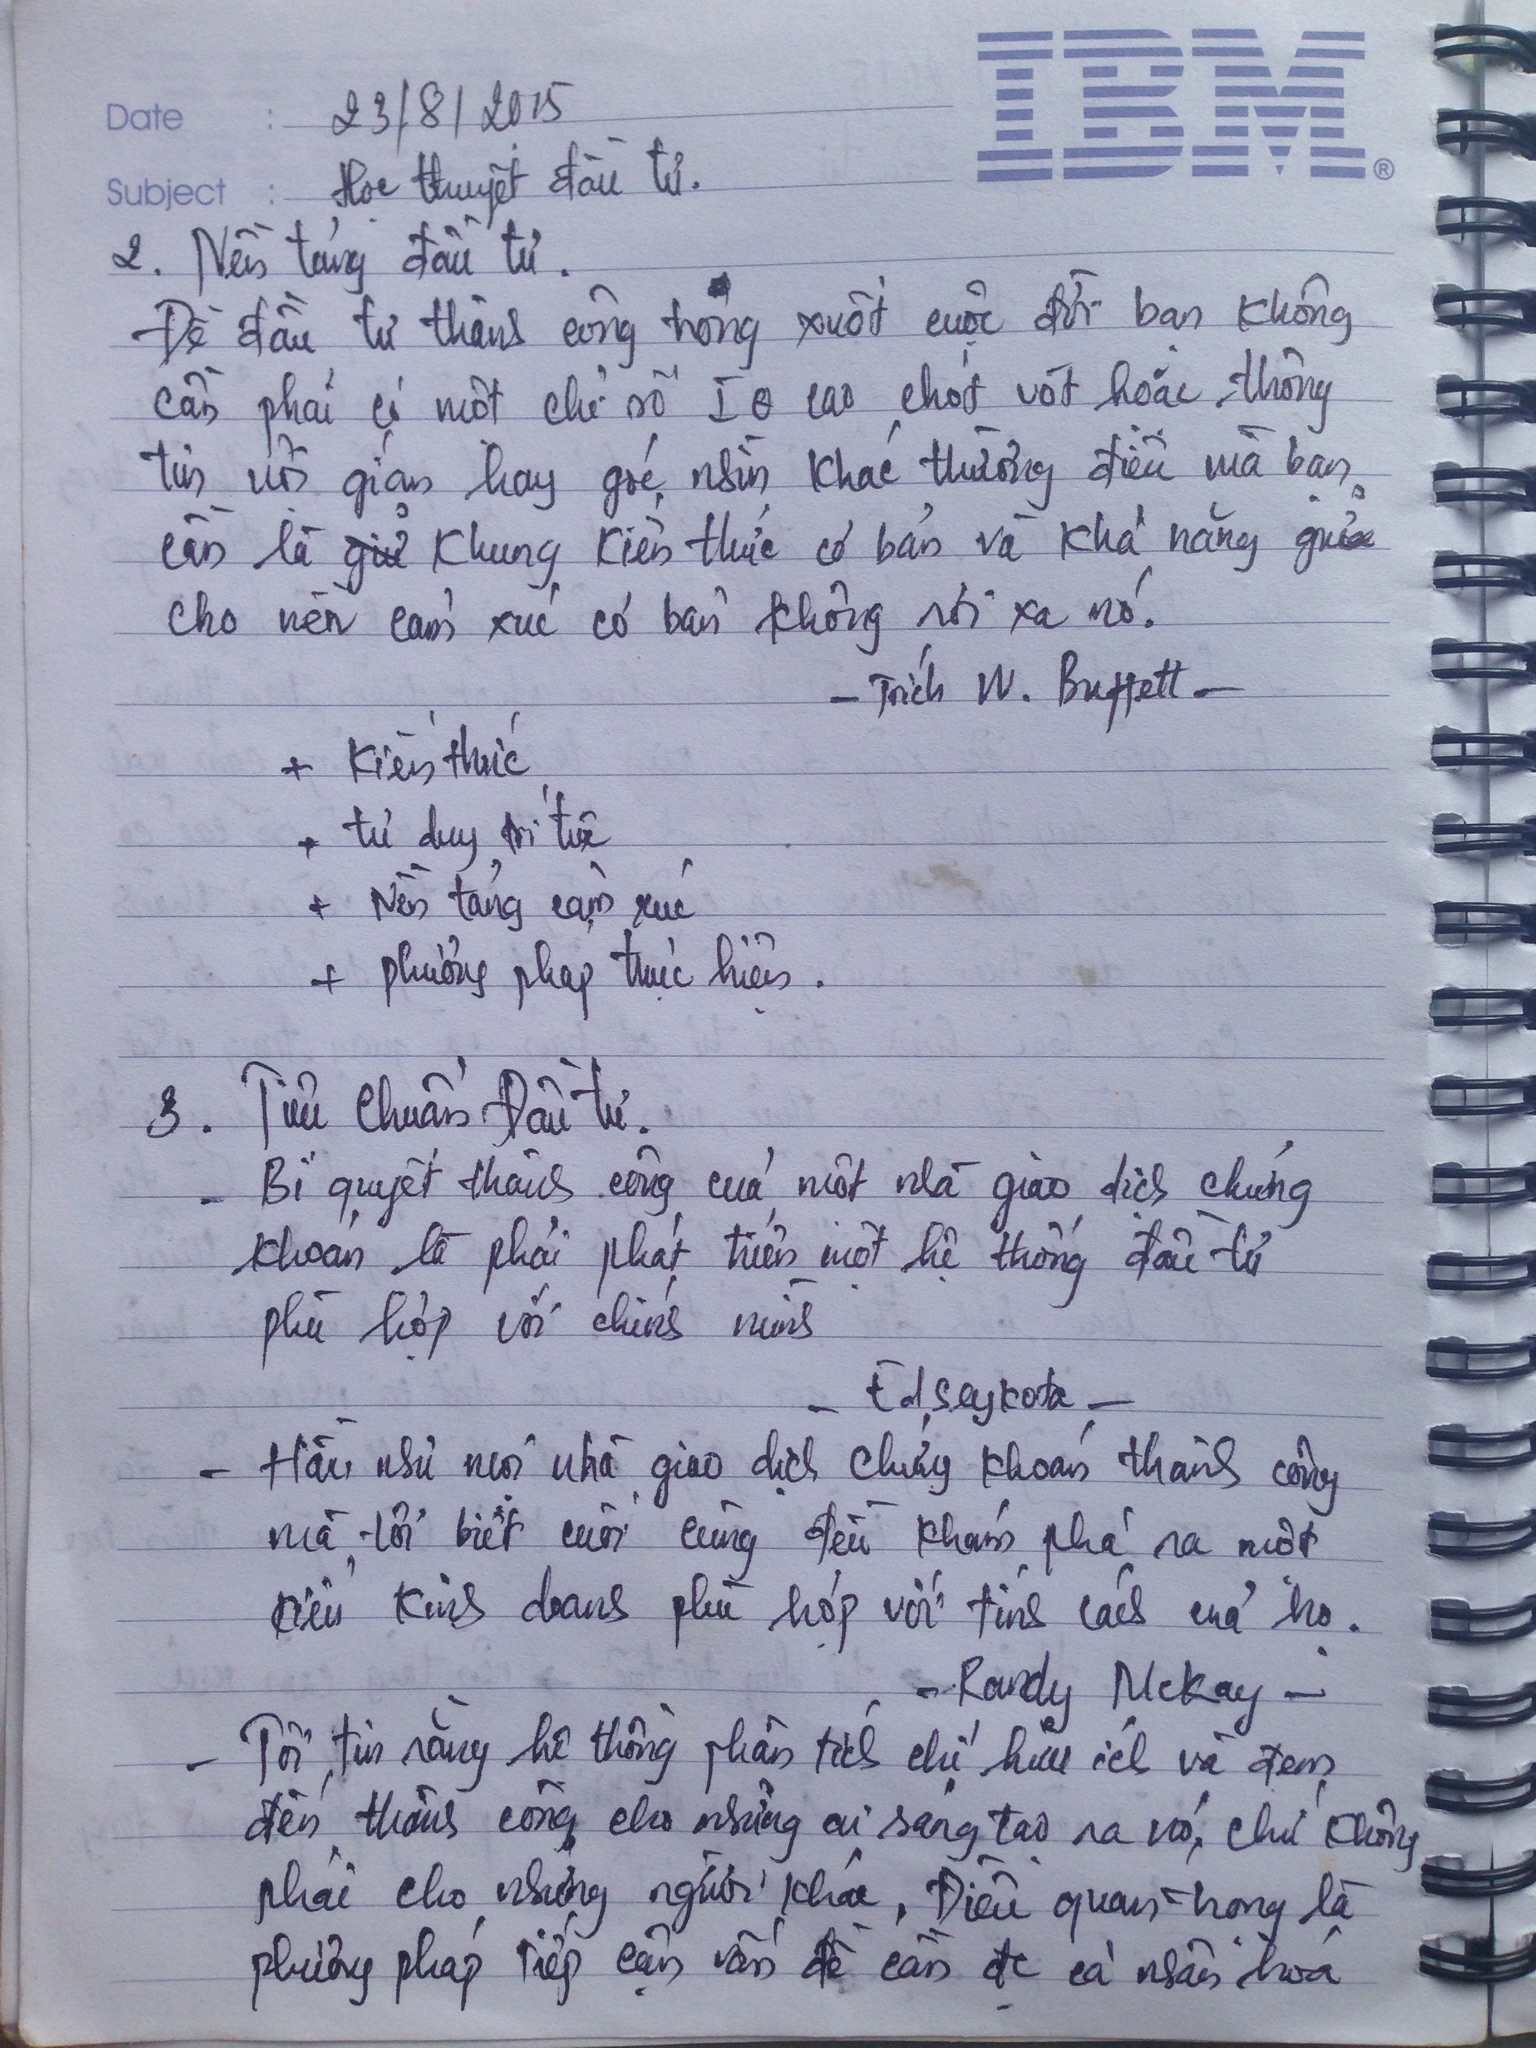 IBM®
Date : 23/8/2015
Subject : Học thuyết đầu tư.
2. Nền tảng đầu tư.
Để đầu tư thành công trong xuốt cuộc đời bạn không
cần phải có một chỉ số IQ cao chót vót hoặc thông
tin nội gián hay góc nhìn khác thường điều mà bạn
cần là giữ khung kiến thức cơ bản và khả năng giữ
cho nền cảm xúc cơ bản không rời xa nó.
- Trích W. Buffett -
+ Kiến thức
+ tư duy trí tuệ
+ Nền tảng cảm xúc
+ phương pháp thực hiện.
3. Tiêu chuẩn Đầu tư.
- Bí quyết thành công của một nhà giao dịch chứng
khoán là phải phát triển một hệ thống đầu tư
phù hợp với chính mình
- Ed Seykota -
- Hầu như mọi nhà giao dịch chứng khoán thành công
mà tôi biết cuối cùng đều khám phá ra một
kiểu kinh doanh phù hợp với tính cách của họ.
- Randy McKay -
- Tôi tin rằng hệ thống phân tích chỉ hữu ích và đem
đến thành công cho những ai sáng tạo ra nó, chứ không
phải cho những người khác. Điều quan trọng là
phương pháp tiếp cận vấn đề cần đc cá nhân hoá